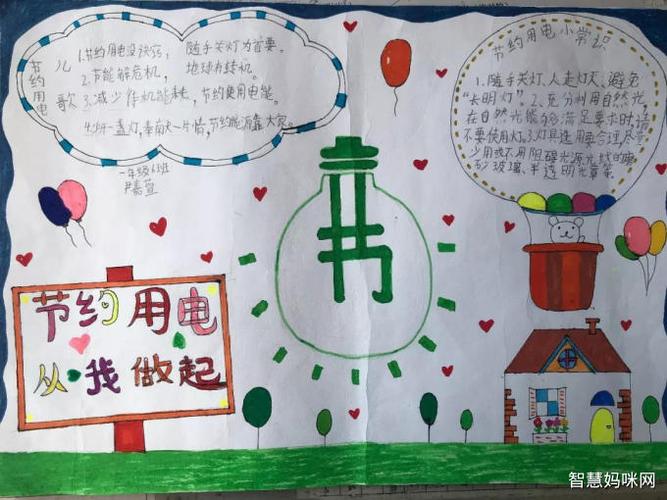 节约用电
儿歌
1.节约用电没诀窍, 随手关灯为首要。
2.节能解危机, 地球有转机。
3.减少待机能耗, 节约使用电能。
4.少开一盏灯,奉献一片情,节约能源靠大家。
一年级(3)班
尹嘉萱
节约用电小常识
1.随手关灯、人走灯灭、避免
“长明灯”。2.充分利用自然光,
在自然光能够满足要求时请
不要使用灯。3.灯具选用要合理,尽量
少用或不用阻碍光源光线的
砂玻璃、半透明光罩等
节约用电
从我做起
智慧妈咪网